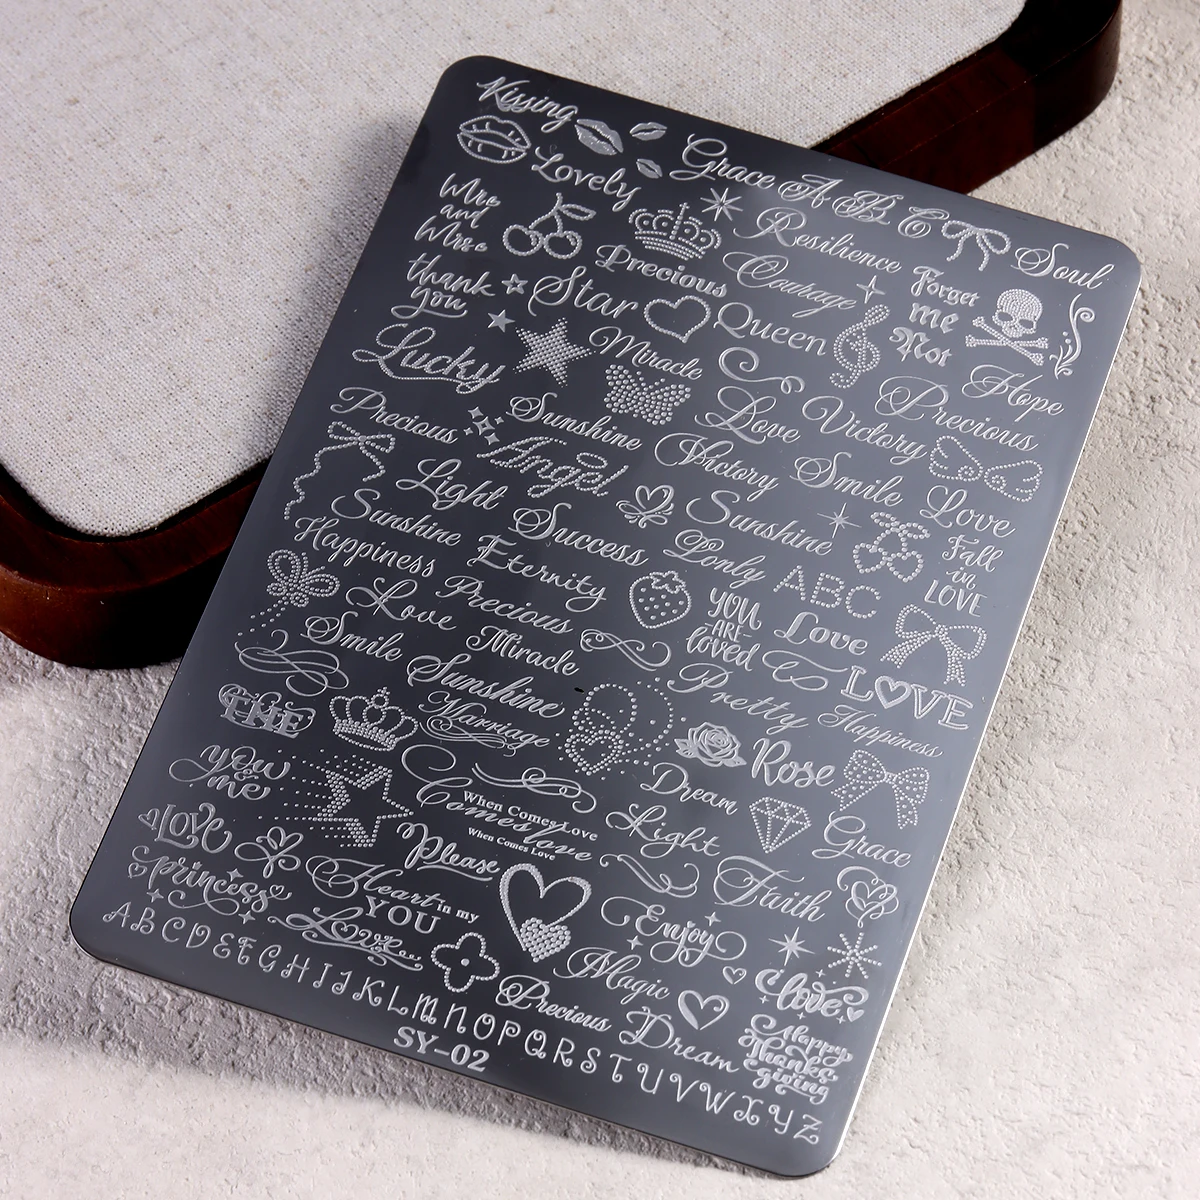 Kissing
Lovely
Grace
A B C
Soul
Mrs
and
Mrs.
Resilience
Precious
Courage
Forget
me
Not
thank
you
Star
Queen
Lucky
Miracle
Hope
Precious
Precious
Sunshine
Love
Victory
Angel
Victory
Smile
Love
Light
Sunshine
Sunshine
Success
Lonly
Fall
in
LOVE
Happiness
Eternity
ABC
Love
Precious
YOU
ARE
loved
Love
Smile
Miracle
LOVE
Sunshine
Pretty
Happiness
THE
Marriage
Rose
you
&
me
Dream
When Comes Love
Comes love
When Comes Love
Light
Grace
Love
Please
Faith
princess
Heart in my
YOU
Love
Enjoy
Magic
i love
Precious
Dream
Happy
Thanks
giving
A B C D E F G H I J K L M N O P Q R S T U V W X Y Z
SY-02